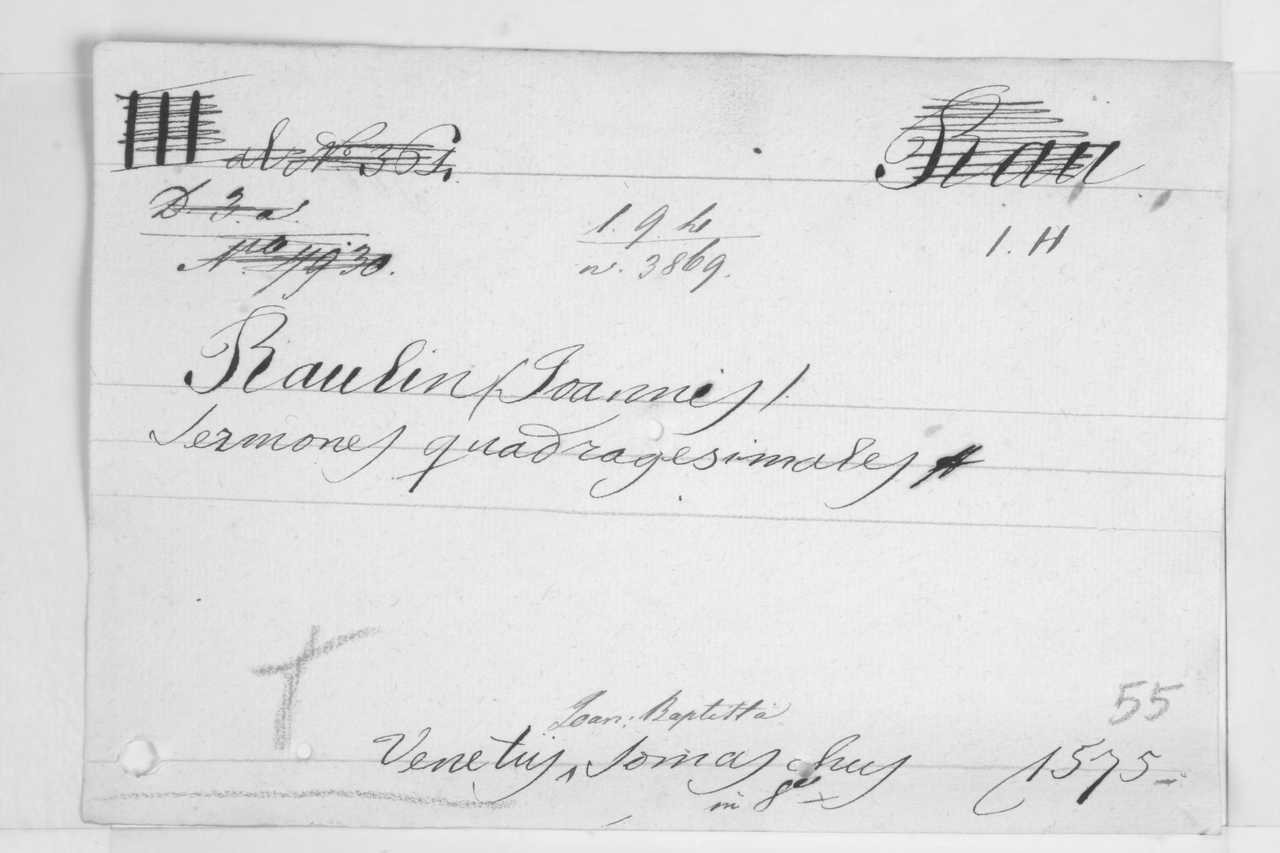 III al. No. 364. Rau
D. 3. a.
No 7930.
1. 9 h
n. 3869.
1. H
Raulin (Joannis)
Sermones quadragesimales
55
Joan: Baptista
Venetiis, Somaschus 1575
in 8º